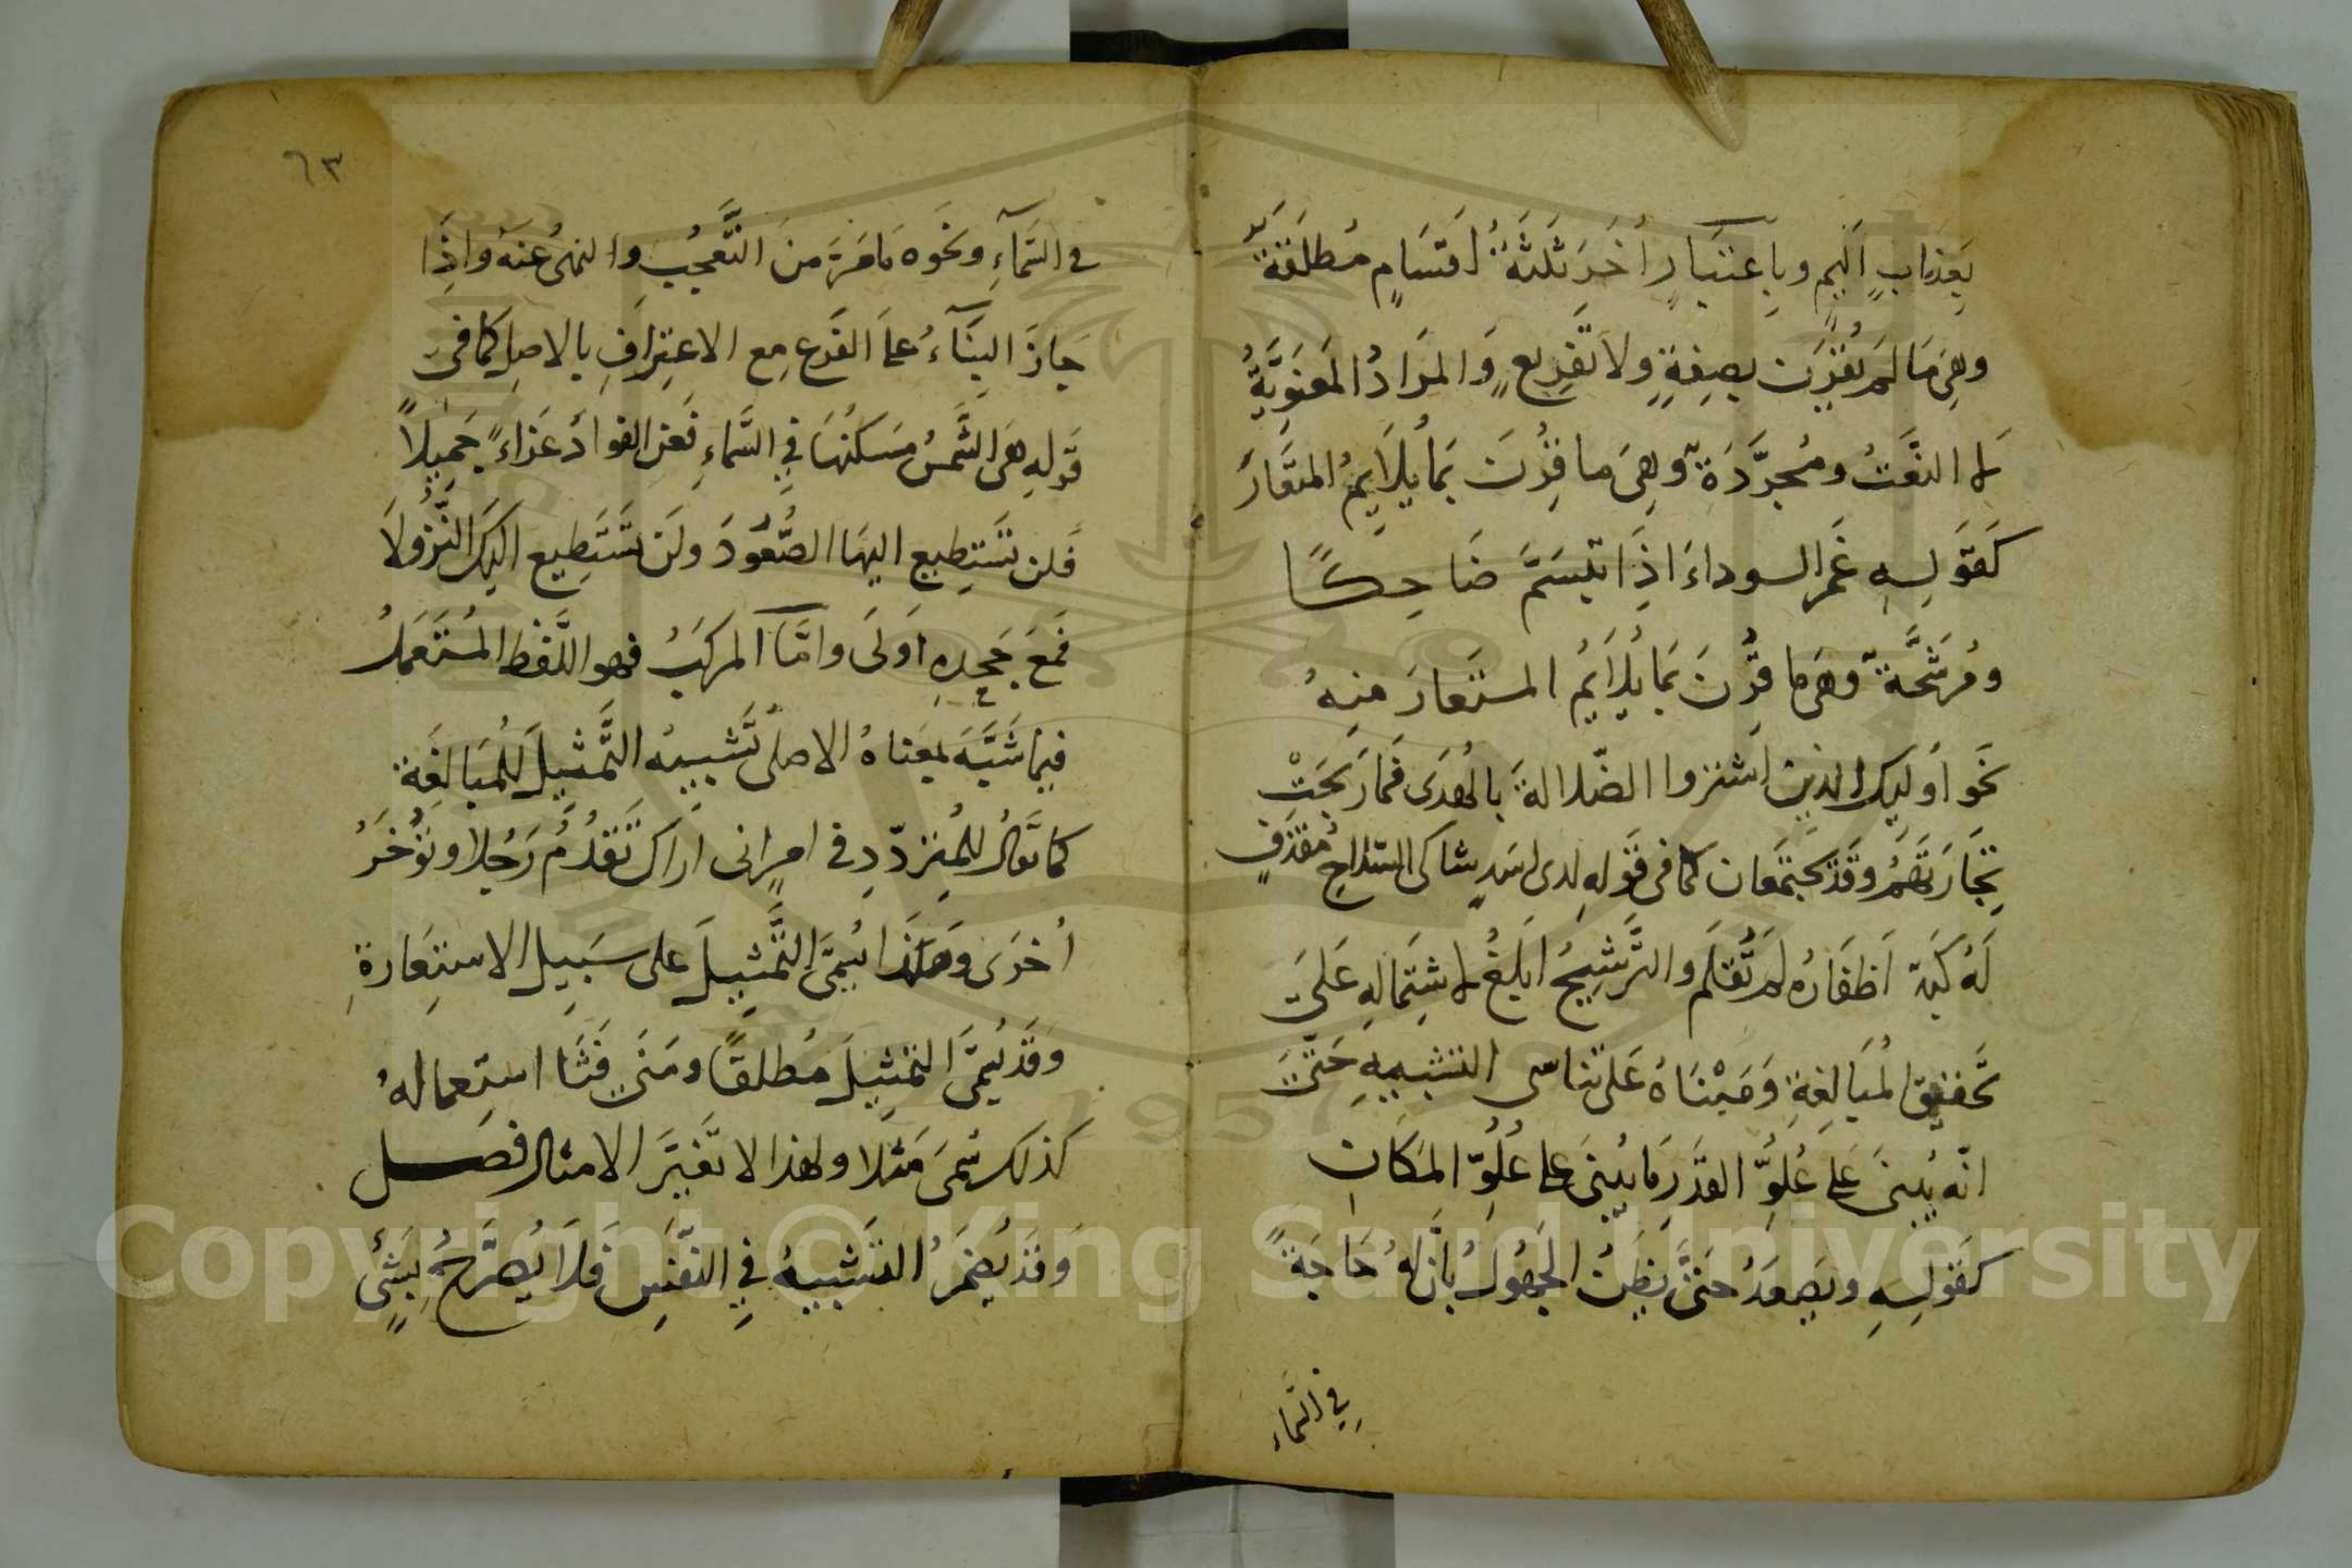 بِعَذَابٍ اَلِيمٍ وبِاِعتبَارٍ اُخَرَ ثَلثَةُ اَقسَامٍ مُطلَقَةٌ
وهِىَ مَا لَم يُقرَن بصِفَةٍ ولا تَفرِيعٍ وَالمرَادُ المَعنَوِيَّةُ
لا النَّعتُ ومُجرَّدَةٌ وهِىَ ما قُرِنَ بمَا يُلَايمُ المستعَارَ
كَقَولِهِ غَمر السوداءَ اذَا تبسَمَّ ضَاحِكًا
ومُرَشَّحَةٌ وهىَ ما قُرِنَ بمَا يُلَايمُ المستعارَ منِهُ
نحَو اُولَيِكَ الذين اشتروا الضّلالةَ بالهُدَى فَمارَبحَتْ
تِجَارَتهُمُ وقَد يجَتمعَان كما فى قَولِهِ لدى اسَدٍ شاكى السّلاحِ مُقذَفٍ
لَهُ لَبدٌ اَظفَارُه لم تُقَلَّم والتَّرشِيحُ اَبلَغُ لاشتِمَالِهِ عَلىَ
تحَقيق المُبَالغَةِ وَمَبْنَاهُ عَلى تنَاسى التشبيهِ حَتّىَ
انّه يُبنىَ عَلى عُلُوِّ القدَرِ مَا يُبنىَ على عُلُوِّ المَكَانِ
كَقَولِهِ ويَصعَدُ حَتىَّ يظَنُّ الجَهُولُ بأنَّ لهُ حَاجَةً
في السَّماء
٦٣
في السَّمآءِ ونحَوه مَامَرَّ منَ التَّعجُّبِ والنهىُ عنَهُ واِذَا
جَازَ البِنَآءُ علىَ الفَرعِ مع الاعتِرَافِ بالاصِلِ كمَا فىِ
قَولِهِ هىَ الشَّمسُ مَسكَنُهَا فِي السَّماءِ فَعَزِ الفوادُ عَزَاءً جَمِيلًا
فَلن تَستَطيع اليهَا الصُّعُودَ ولَن تَستَطِيع اليكَ النُّزُولَا
فَمَعَ جَحدِهِ اوَلَى وامَّا المركبَّ فهو اللَّفظُ المُستَعملُ
فيما شَبَّهَ بمعَناهُ الاصلى تَشبيهُ التَّمثيلَ للمُبَالغَة
كما يقَالُ للمُترَدّدِ فى امرٍ انى اراك تَقدُّمُ رَجُلا وتؤُخرُ
اُخرَى وَهذَا يُسمَّى التَّمثِيلَ على سَبِيلِ الاستِعَارةِ
وَقَد يُسمىَّ التَمثِيلَ مُطلقًا ومَتَى فَشَا استِعمالهُ
كذلك سُمىَ مَثَلا ولهذا لا تغَيَّرَ الامثال فصَل
وَقَد يُضمَرُ التشبيهُ فىِ النّفسِ فَلا يُصَرَّحُ بشَئٍ